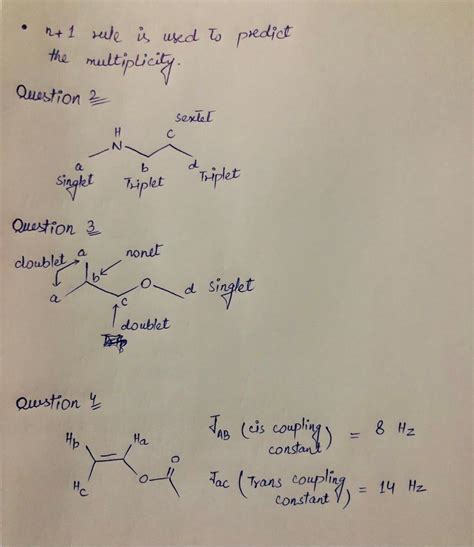 • n+1 rule is used to predict
the multiplicity.
Question 2
sextet
H
N
c
a
b
d
Singlet
Triplet
Triplet
Question 3
doublet
a
nonet
b
O
d Singlet
a
c
doublet
Question 4
Hb
Ha
JAB (cis coupling constant) = 8 Hz
O
O
Hc
Jac (Trans coupling constant) = 14 Hz